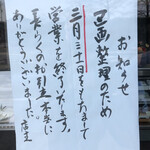 お知らせ
区画整理のため
三月三十一日をもちまして
営業を終了致します。
長らくのお引立本当に
ありがとうございました。店主